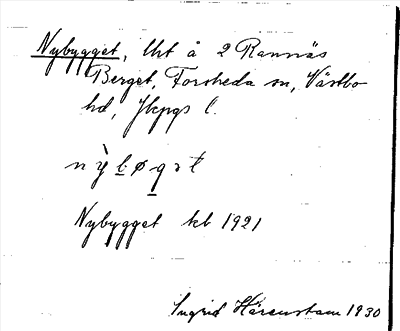 Nybygget, lht å 2 Rannäs
Berget, Forsheda sn, Västbo
hd, Jkpgs l.
Nybygget kb 1921
Ingrid Härenstam 1930